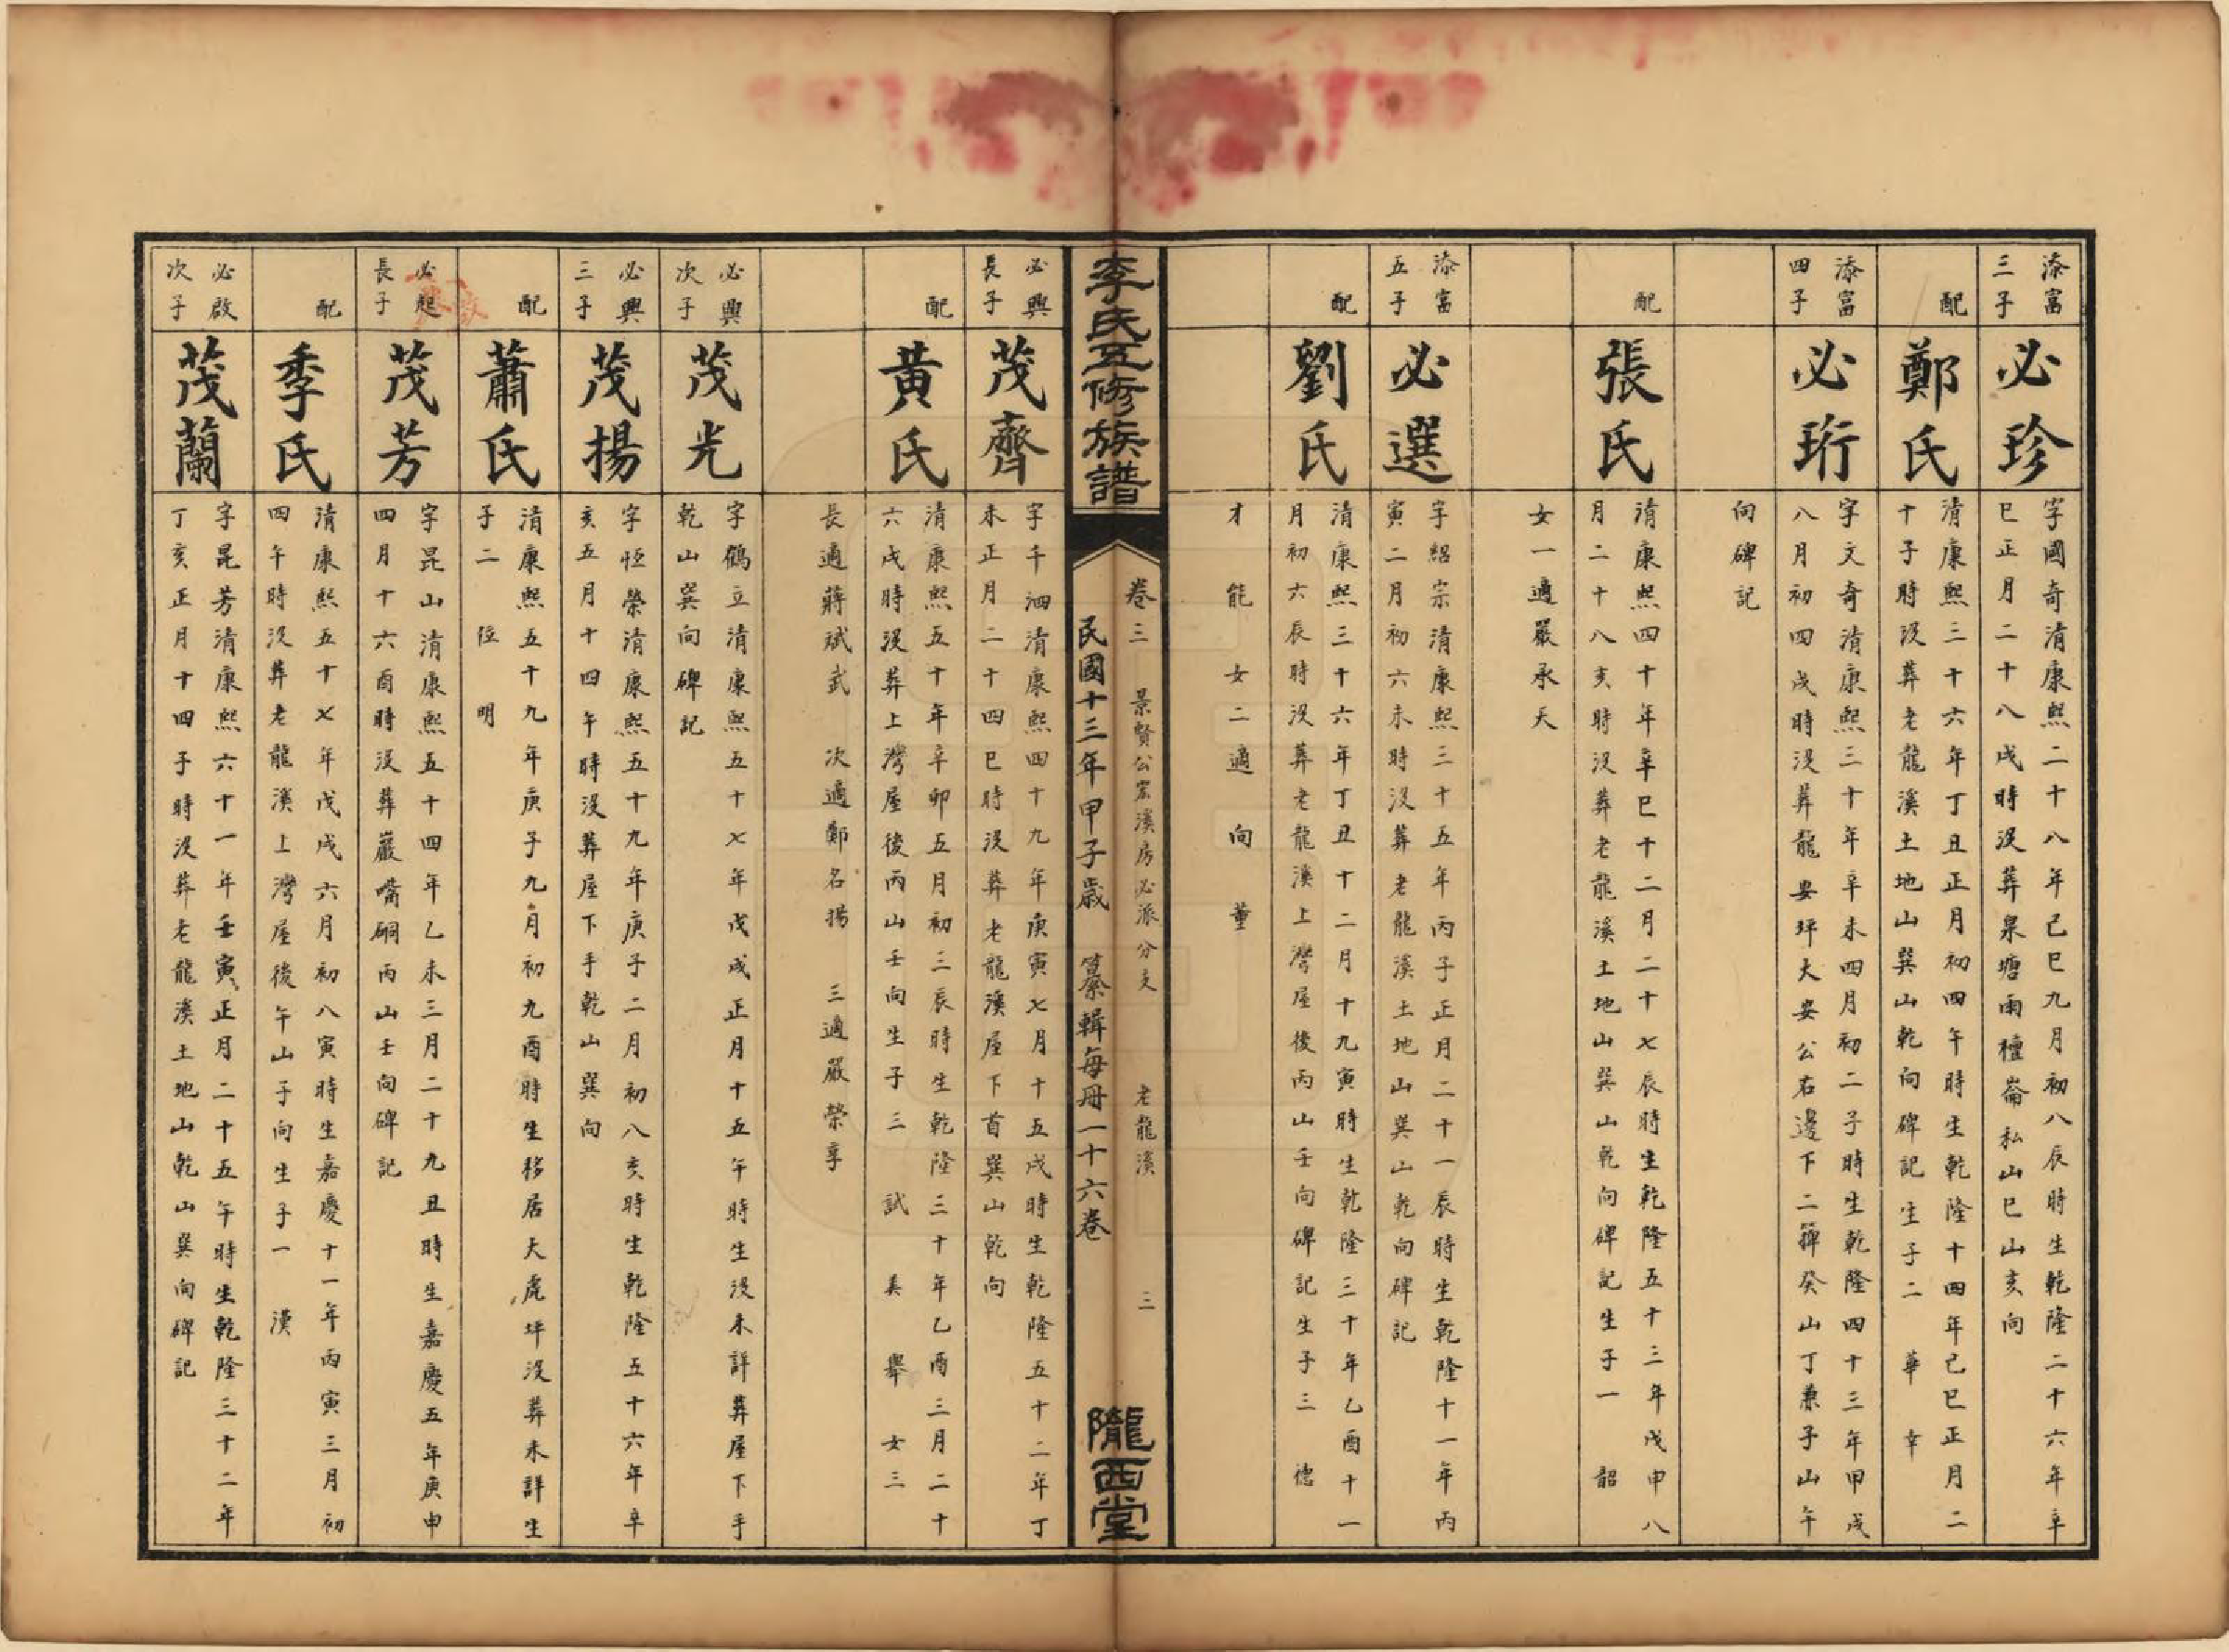 添富
三子
必珍
字國奇清康熙二十八年己巳九月初八辰時生乾隆二十六年辛
巳正月二十八戌時沒葬泉塘雨檀崙私山巳山亥向
配
鄭氏
清康熙三十六年丁丑正月初四午時生乾隆十四年己巳正月二
十子時沒葬老龍溪土地山巽山乾向碑記生子二 華 幸
添富
四子
必珩
字文奇清康熙三十年辛未四月初二子時生乾隆四十三年甲戌
八月初四戌時沒葬龍安坪大安公右邊下二箄癸山丁兼子山午
向碑記
配
張氏
清康熙四十年辛巳十二月二十七辰時生乾隆五十三年戊申八
月二十八亥時沒葬老龍溪土地山巽山乾向碑記生子一 韶
女一適嚴承天
添富
五子
必選
字紹宗清康熙三十五年丙子正月二十一辰時生乾隆十一年丙
寅二月初六未時沒葬老龍溪土地山巽山乾向碑記
配
劉氏
清康熙三十六年丁丑十二月十九寅時生乾隆三十年乙酉十一
月初六辰時沒葬老龍溪上灣屋後丙山壬向碑記生子三 德
才 能 女二適 向 董
卷三 景賢公宗溪房必派分支 老龍溪 三
李氏五修族譜
民國十三年甲子歲 纂輯每冊一十六卷
隴西堂
必興
長子
茂齊
字千泗清康熙四十九年庚寅七月十五戌時生乾隆五十二年丁
未正月二十四巳時沒葬老龍溪屋下首巽山乾向
配
黃氏
清康熙五十年辛卯五月初三辰時生乾隆三十年乙酉三月二十
六戌時沒葬上灣屋後丙山壬向生子三 試 美 舉 女三
長適蔣斌武 次適鄭名揚 三適嚴榮享
必興
次子
茂光
字鶴立清康熙五十七年戊戌正月十五午時生沒未詳葬屋下手
乾山巽向碑記
必興
三子
茂揚
字恒榮清康熙五十九年庚子二月初八亥時生乾隆五十六年辛
亥五月十四午時沒葬屋下手乾山巽向
配
蕭氏
清康熙五十九年庚子九月初九酉時生移居大虎坪沒葬未詳生
子二 位 明
必起
長子
茂芳
字昆山清康熙五十四年乙未三月二十九丑時生嘉慶五年庚申
四月十六酉時沒葬巖嘴硐丙山壬向碑記
配
季氏
清康熙五十七年戊戌六月初八寅時生嘉慶十一年丙寅三月初
四午時沒葬老龍溪上灣屋後午山子向生子一 漢
必啟
次子
茂蘭
字昆芳清康熙六十一年壬寅正月二十五午時生乾隆三十二年
丁亥正月十四子時沒葬老龍溪土地山乾山巽向碑記